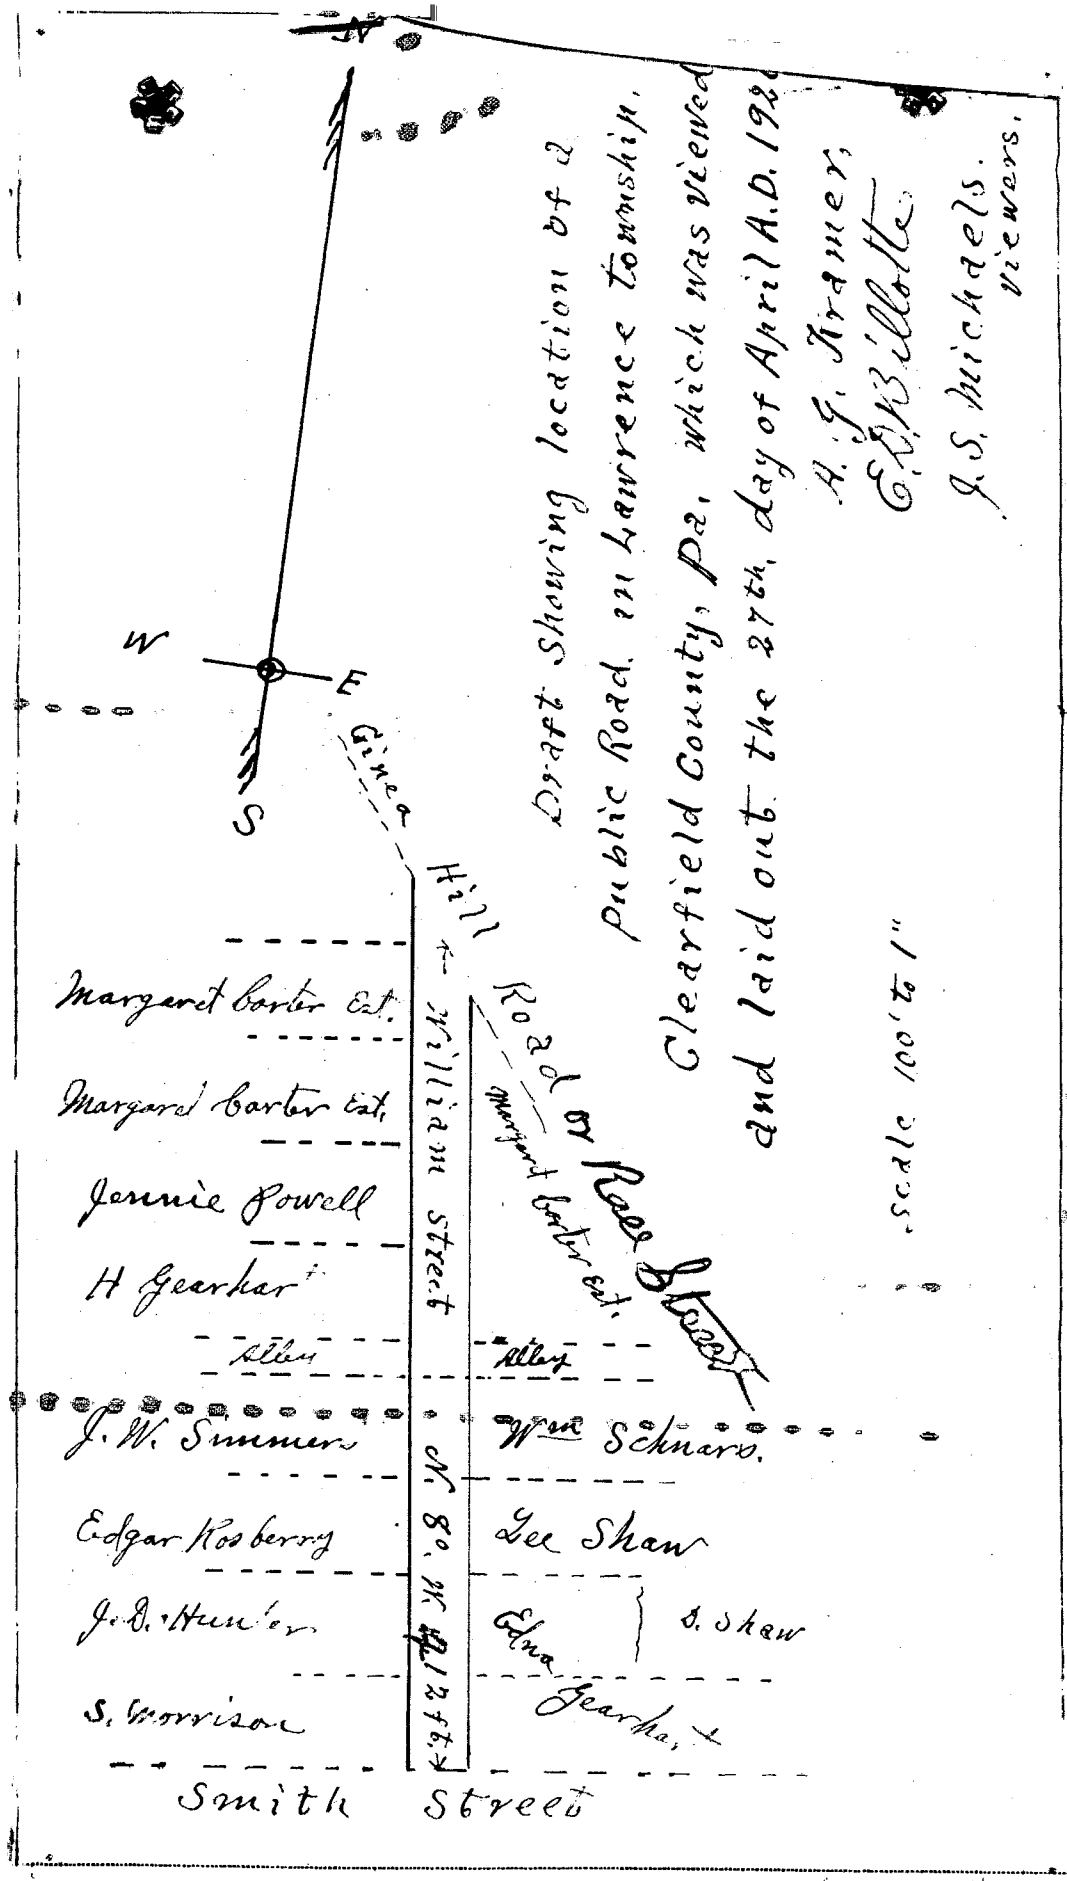 N
W
E
S
Draft Showing location of a
Public Road in Lawrence township,
Clearfield County, Pa. which was viewed
and laid out the 27th. day of April A.D. 192
A. G. Kramer,
E. D. Billotte
J. S. Michaels.
viewers.
scale 100' to 1"
Ginea Hill Road or
William Street
N. 8°. W. 12 ft.
Margaret Carter Est.
Margaret Carter Est.
Jennie Powell
H Gearhart
Alley
J. W. Simmers
Edgar Rosberry
J. D. Hunter
S. Morrison
Margaret Carter Est.
Alley
Wm Schnars.
Lee Shaw
Edna Gearhart
D. Shaw
Smith Street